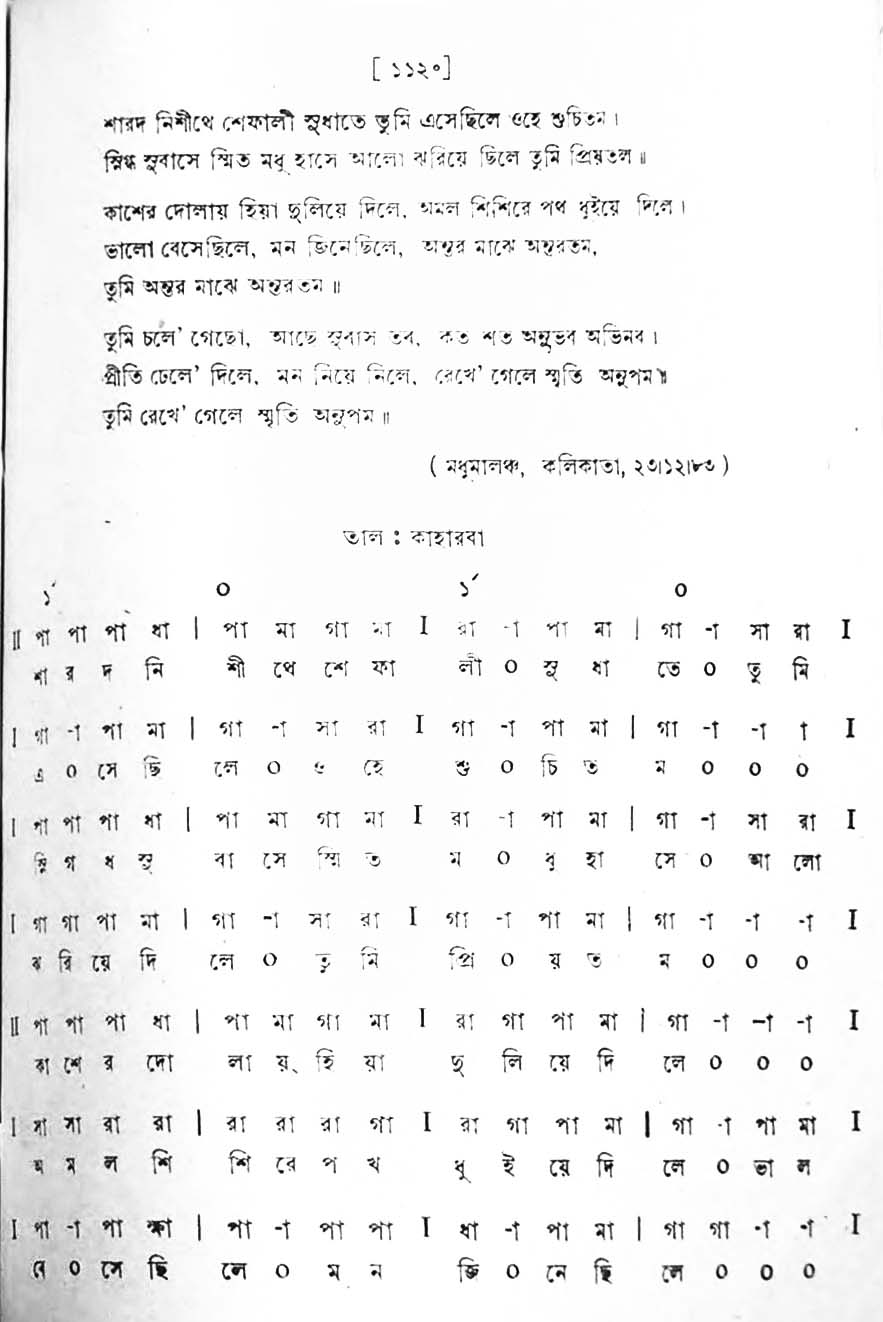 [ ১১২০]
শারদ নিশীথে শেফালী সুধাতে তুমি এসেছিলে ওহে শুচিতম।
স্নিগ্ধ সুবাসে স্মিত মধু হাসে আলো ঝরিয়ে ছিলে তুমি প্রিয়তল॥
কাশের দোলায় হিয়া দুলিয়ে দিলে, অমল শিশিরে পথ ধুইয়ে দিলে।
ভালো বেসেছিলে, মন জিনেছিলে, অন্তর মাঝে অন্তরতম,
তুমি অন্তর মাঝে অন্তরতম॥
তুমি চলে' গেছো, আছে সুবাস তব, কত শত অনুভব অভিনব।
প্রীতি ঢেলে' দিলে, মন নিয়ে নিলে, রেখে' গেলে স্মৃতি অনুপম॥
তুমি রেখে' গেলে স্মৃতি অনুপম॥
( মধুমালঞ্চ, কলিকাতা, ২৩।১২।৮৩ )
তাল : কাহারবা
১´ ০ ১´ ০
॥ পা পা পা ধা | পা মা গা মা I রা -া পা মা | গা -া সা রা I
শা র দ নি শী থে শে ফা লী ০ সু ধা তে ০ তু মি
| গা -া পা মা | গা -া সা রা I গা -া পা মা | গা -া -া া I
এ ০ সে ছি লে ০ ও হে শু ০ চি ত ম ০ ০ ০
| পা পা পা ধা | পা মা গা মা I রা -া পা মা | গা -া সা রা I
স্নি গ ধ সু বা সে স্মি ত ম ০ ধু হা সে ০ আ লো
| গা গা পা মা | গা -া সা রা I গা -া পা মা | গা -া -া -া I
ঝ রি য়ে দি লে ০ তু মি প্রি ০ য় ত ম ০ ০ ০
॥ পা পা পা ধা | পা মা গা মা I রা গা পা মা | গা -া -া -া I
কা শে র দো লা য়্ হি য়া দু লি য়ে দি লে ০ ০ ০
| সা সা রা রা | রা রা রা গা I রা গা পা মা | গা -া পা মা I
অ ম ল শি শি রে প থ ধু ই য়ে দি লে ০ ভা ল
| পা -া পা ক্ষা | পা -া পা পা I ধা -া পা মা | গা গা -া -া I
বে ০ সে ছি লে ০ ম ন জি ০ নে ছি লে ০ ০ ০